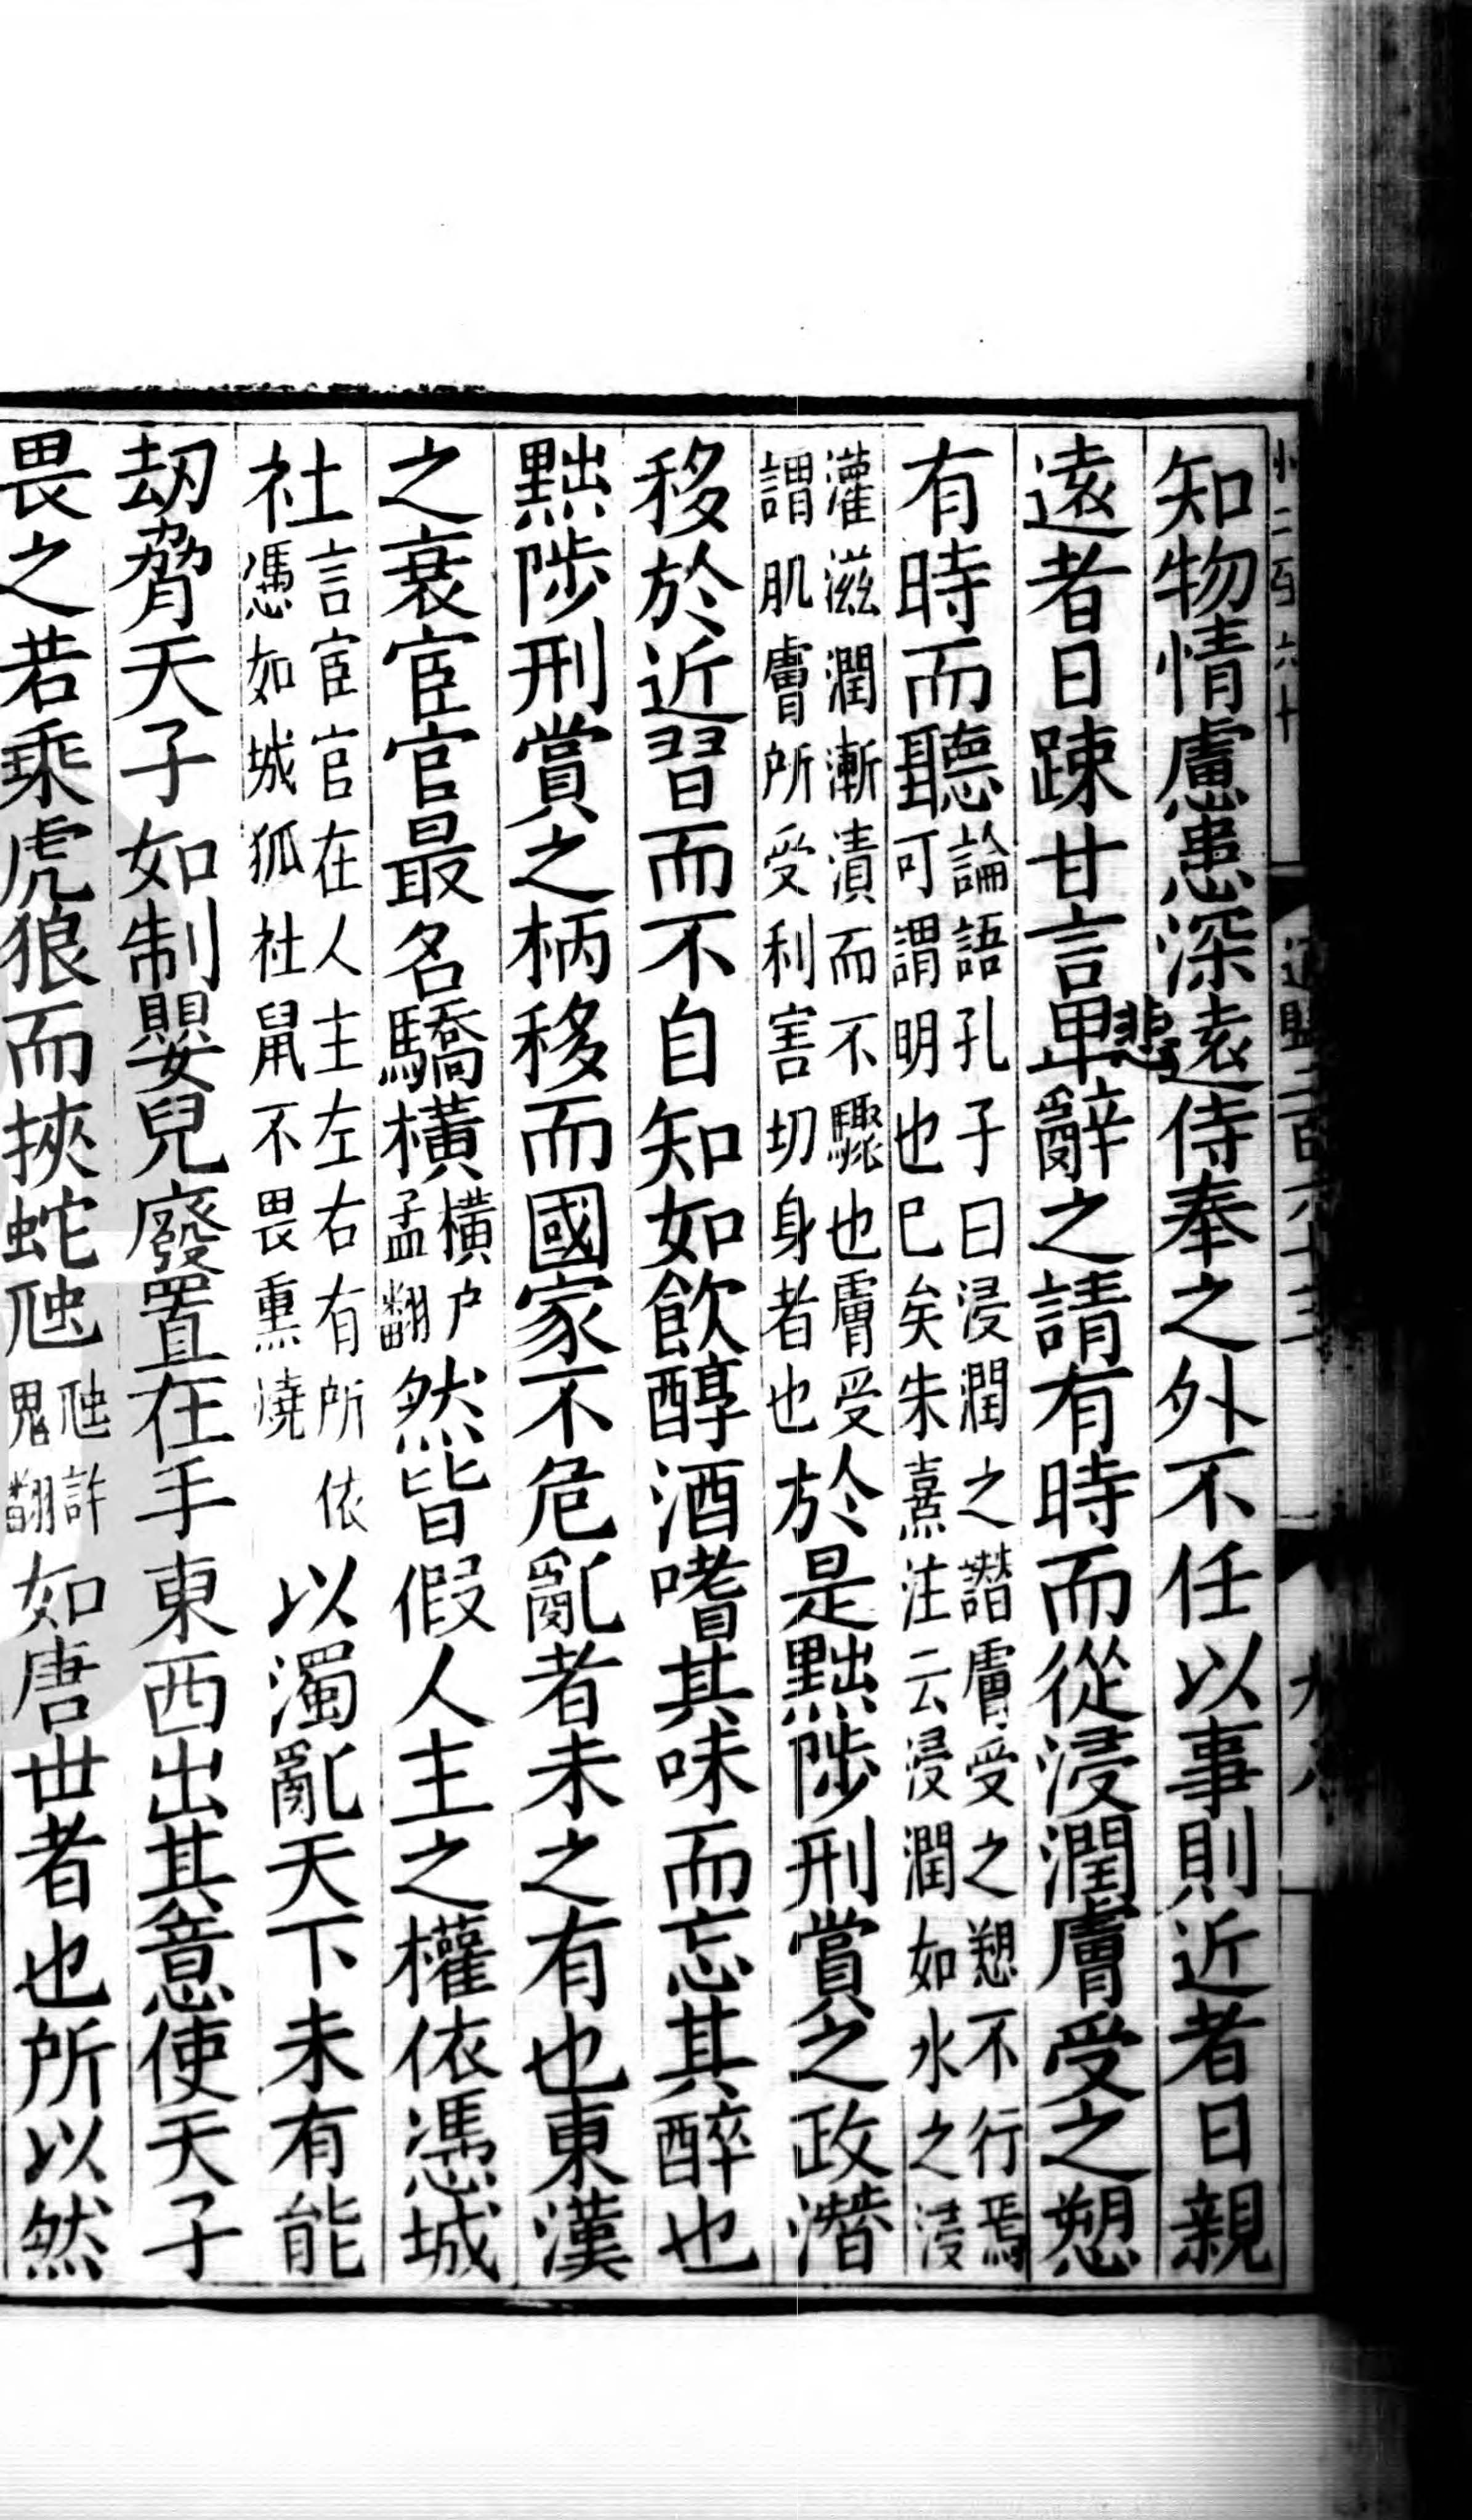 通鑑二百六十三
知物情慮患深遠侍奉之外不任以事則近者日親
遠者日踈甘言卑辭之請有時而從浸潤膚受之愬
有時而聽論語孔子曰浸潤之譖膚受之愬不行焉
可謂明也已矣朱熹注云浸潤如水之浸
灌滋潤漸漬而不驟也膚受
謂肌膚所受利害切身者也於是黜陟刑賞之政潛
移於近習而不自知如飲醇酒嗜其味而忘其醉也
黜陟刑賞之柄移而國家不危亂者未之有也東漢
之衰宦官最名驕橫橫户
孟翻然皆假人主之權依憑城
社言宦官在人主左右有所依
憑如城狐社鼠不畏熏燒以濁亂天下未有能
劫脅天子如制嬰兒廢置在手東西出其意使天子
畏之若乘虎狼而挾蛇虺虺許
鬼翻如唐世者也所以然